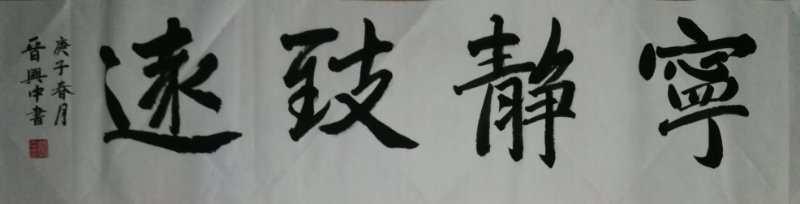 寧静致遠
庚子春月
晋興中書